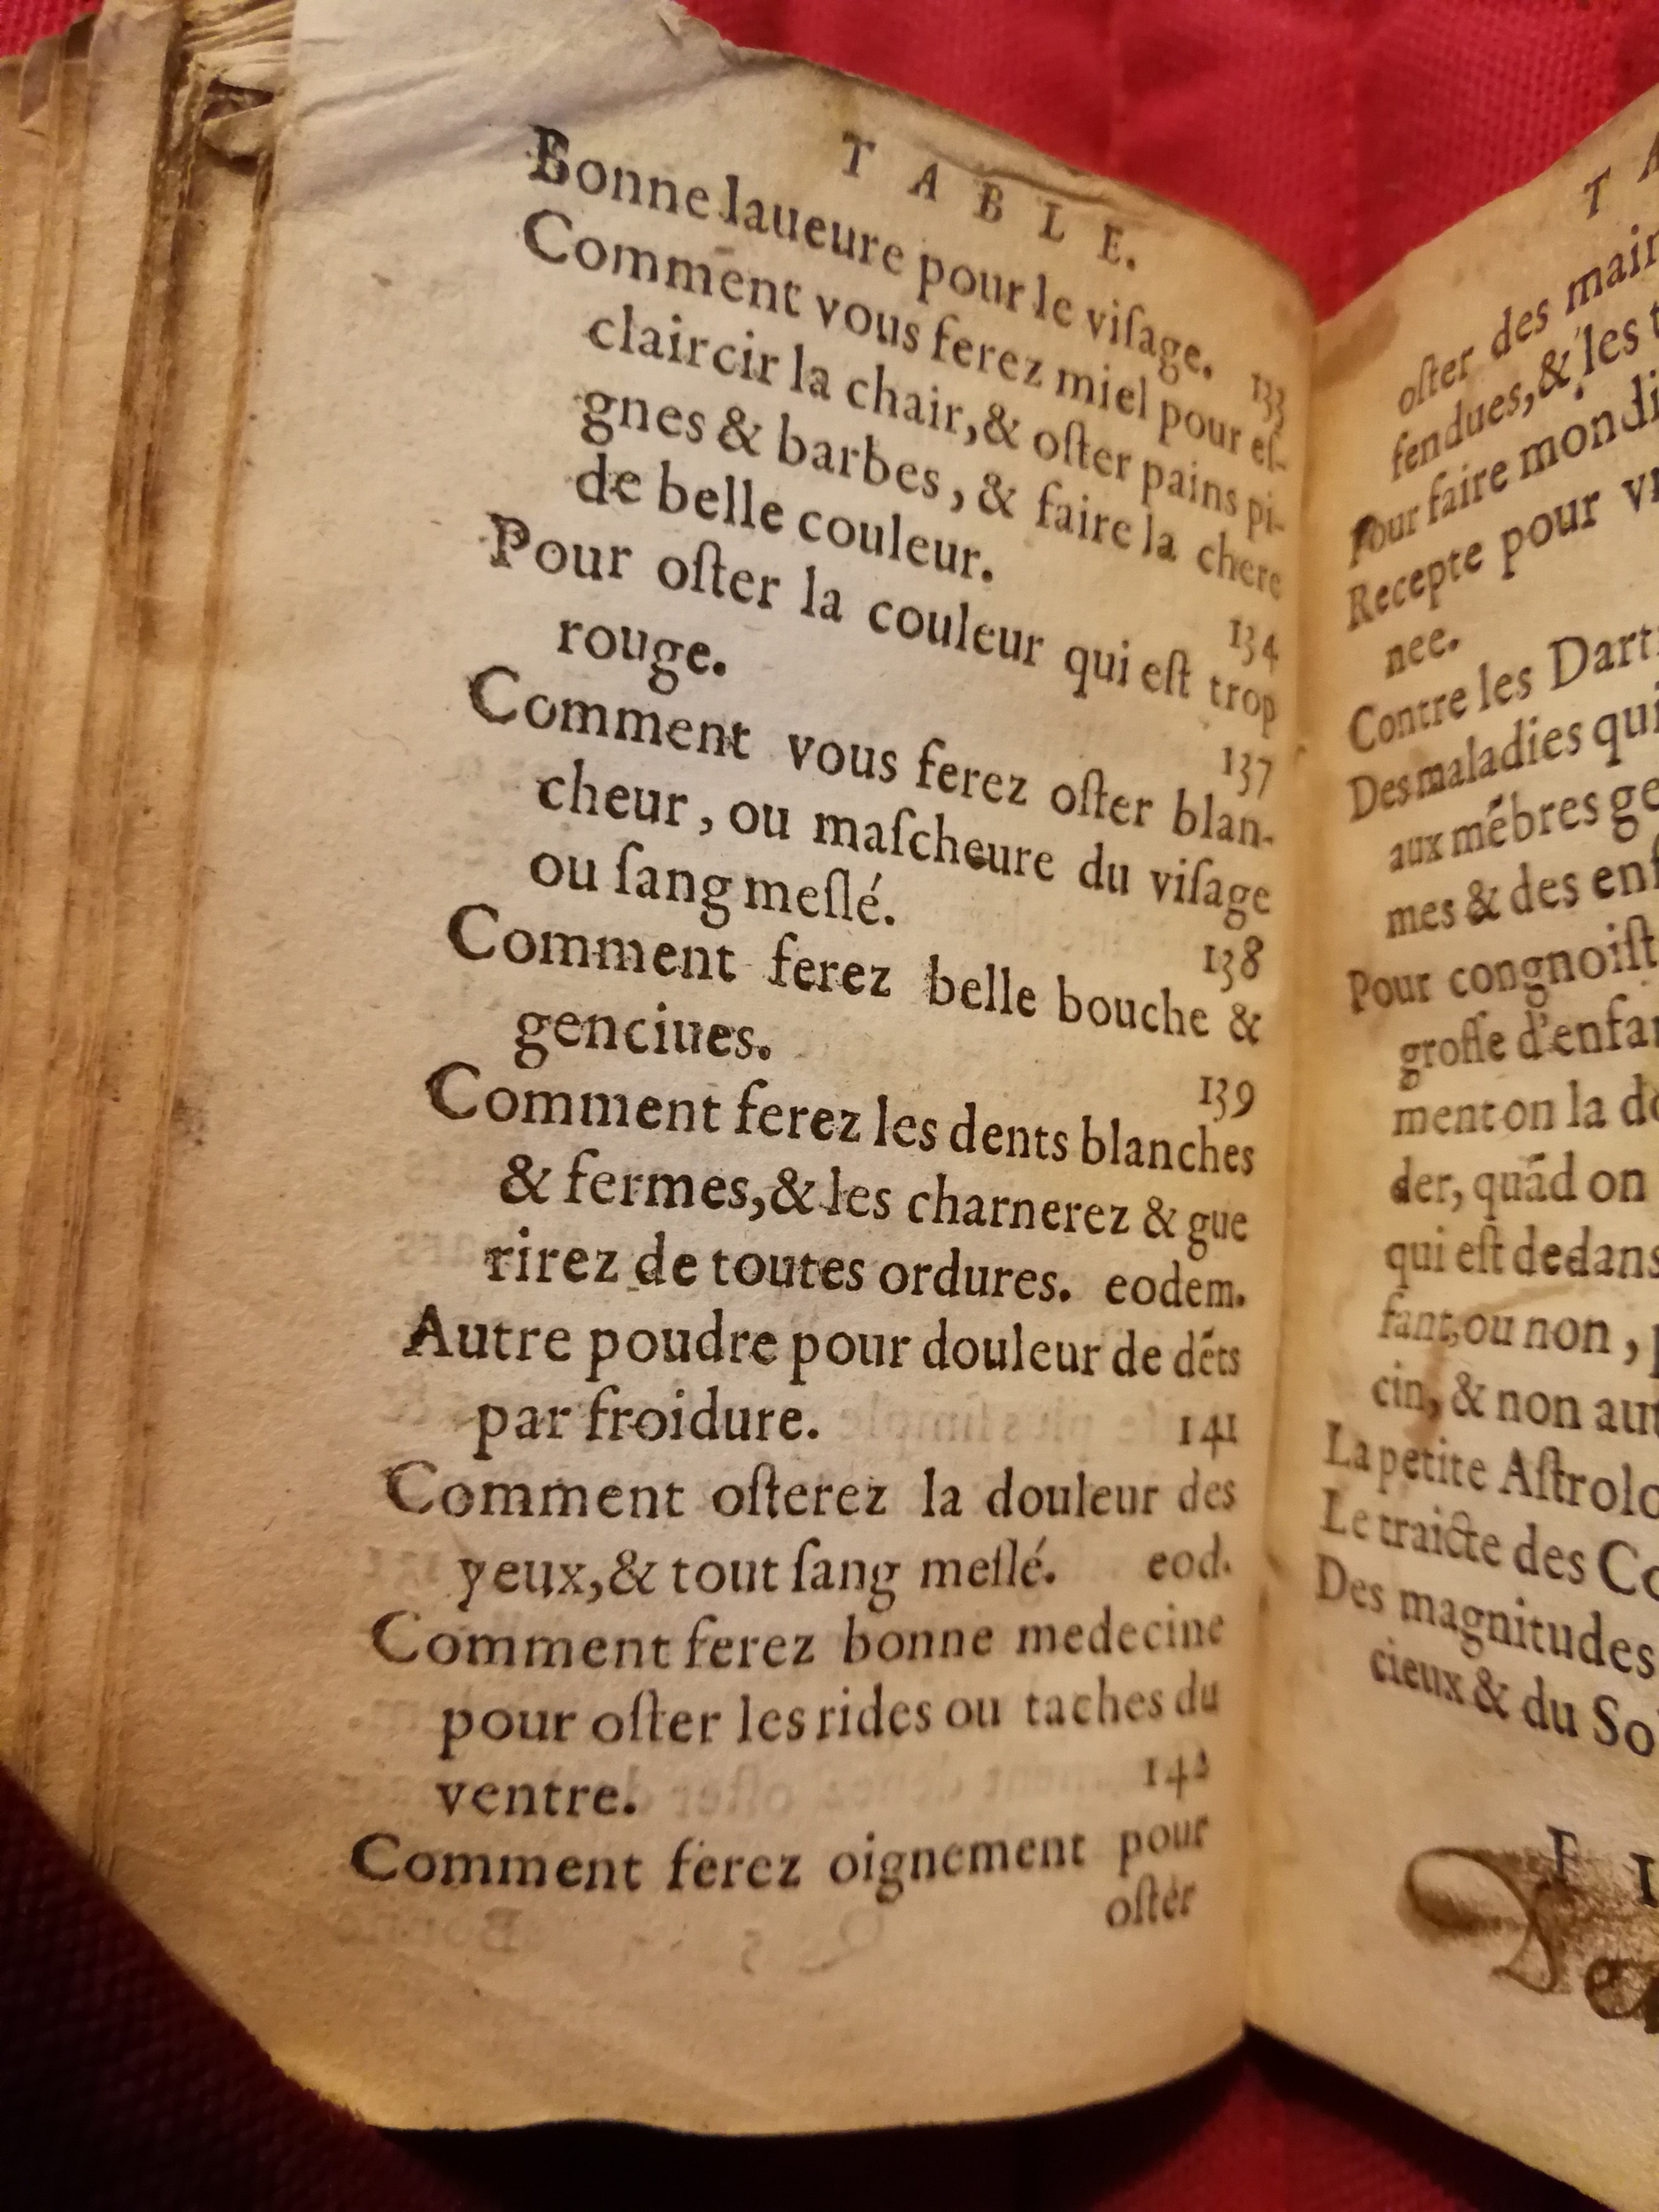 TABLE.
Bonne laueure pour le viſage. 133
Comment vous ferez miel pour eſ-
claircir la chair,& oſter pains pi-
gnes & barbes, & faire la chere
de belle couleur. 134
Pour oſter la couleur qui eſt trop
rouge. 137
Comment vous ferez oſter blan-
cheur, ou maſcheure du viſage
ou ſang meſlé. 138
Comment ferez belle bouche &
genciues. 139
Comment ferez les dents blanches
& fermes,& les charnerez & gue
rirez de toutes ordures. eodem.
Autre poudre pour douleur de déts
par froidure. 141
Comment oſterez la douleur des
yeux,& tout ſang meſlé. eod.
Comment ferez bonne medecine
pour oſter les rides ou taches du
ventre. 142
Comment ferez oignement pour
oſter
T A
oſter des main
fendues,& les
Pour faire mondi
Recepte pour
nee.
Contre les Dart
Des maladies qui
aux mẽbres ge
mes & des enf
Pour congnoiſt
groſſe d'enfa
ment on la do
der, quãd on
qui eſt dedans
fant,ou non,
cin, & non aut
La petite Aſtrolo
Le traicte des Co
Des magnitudes
cieux & du So
F I